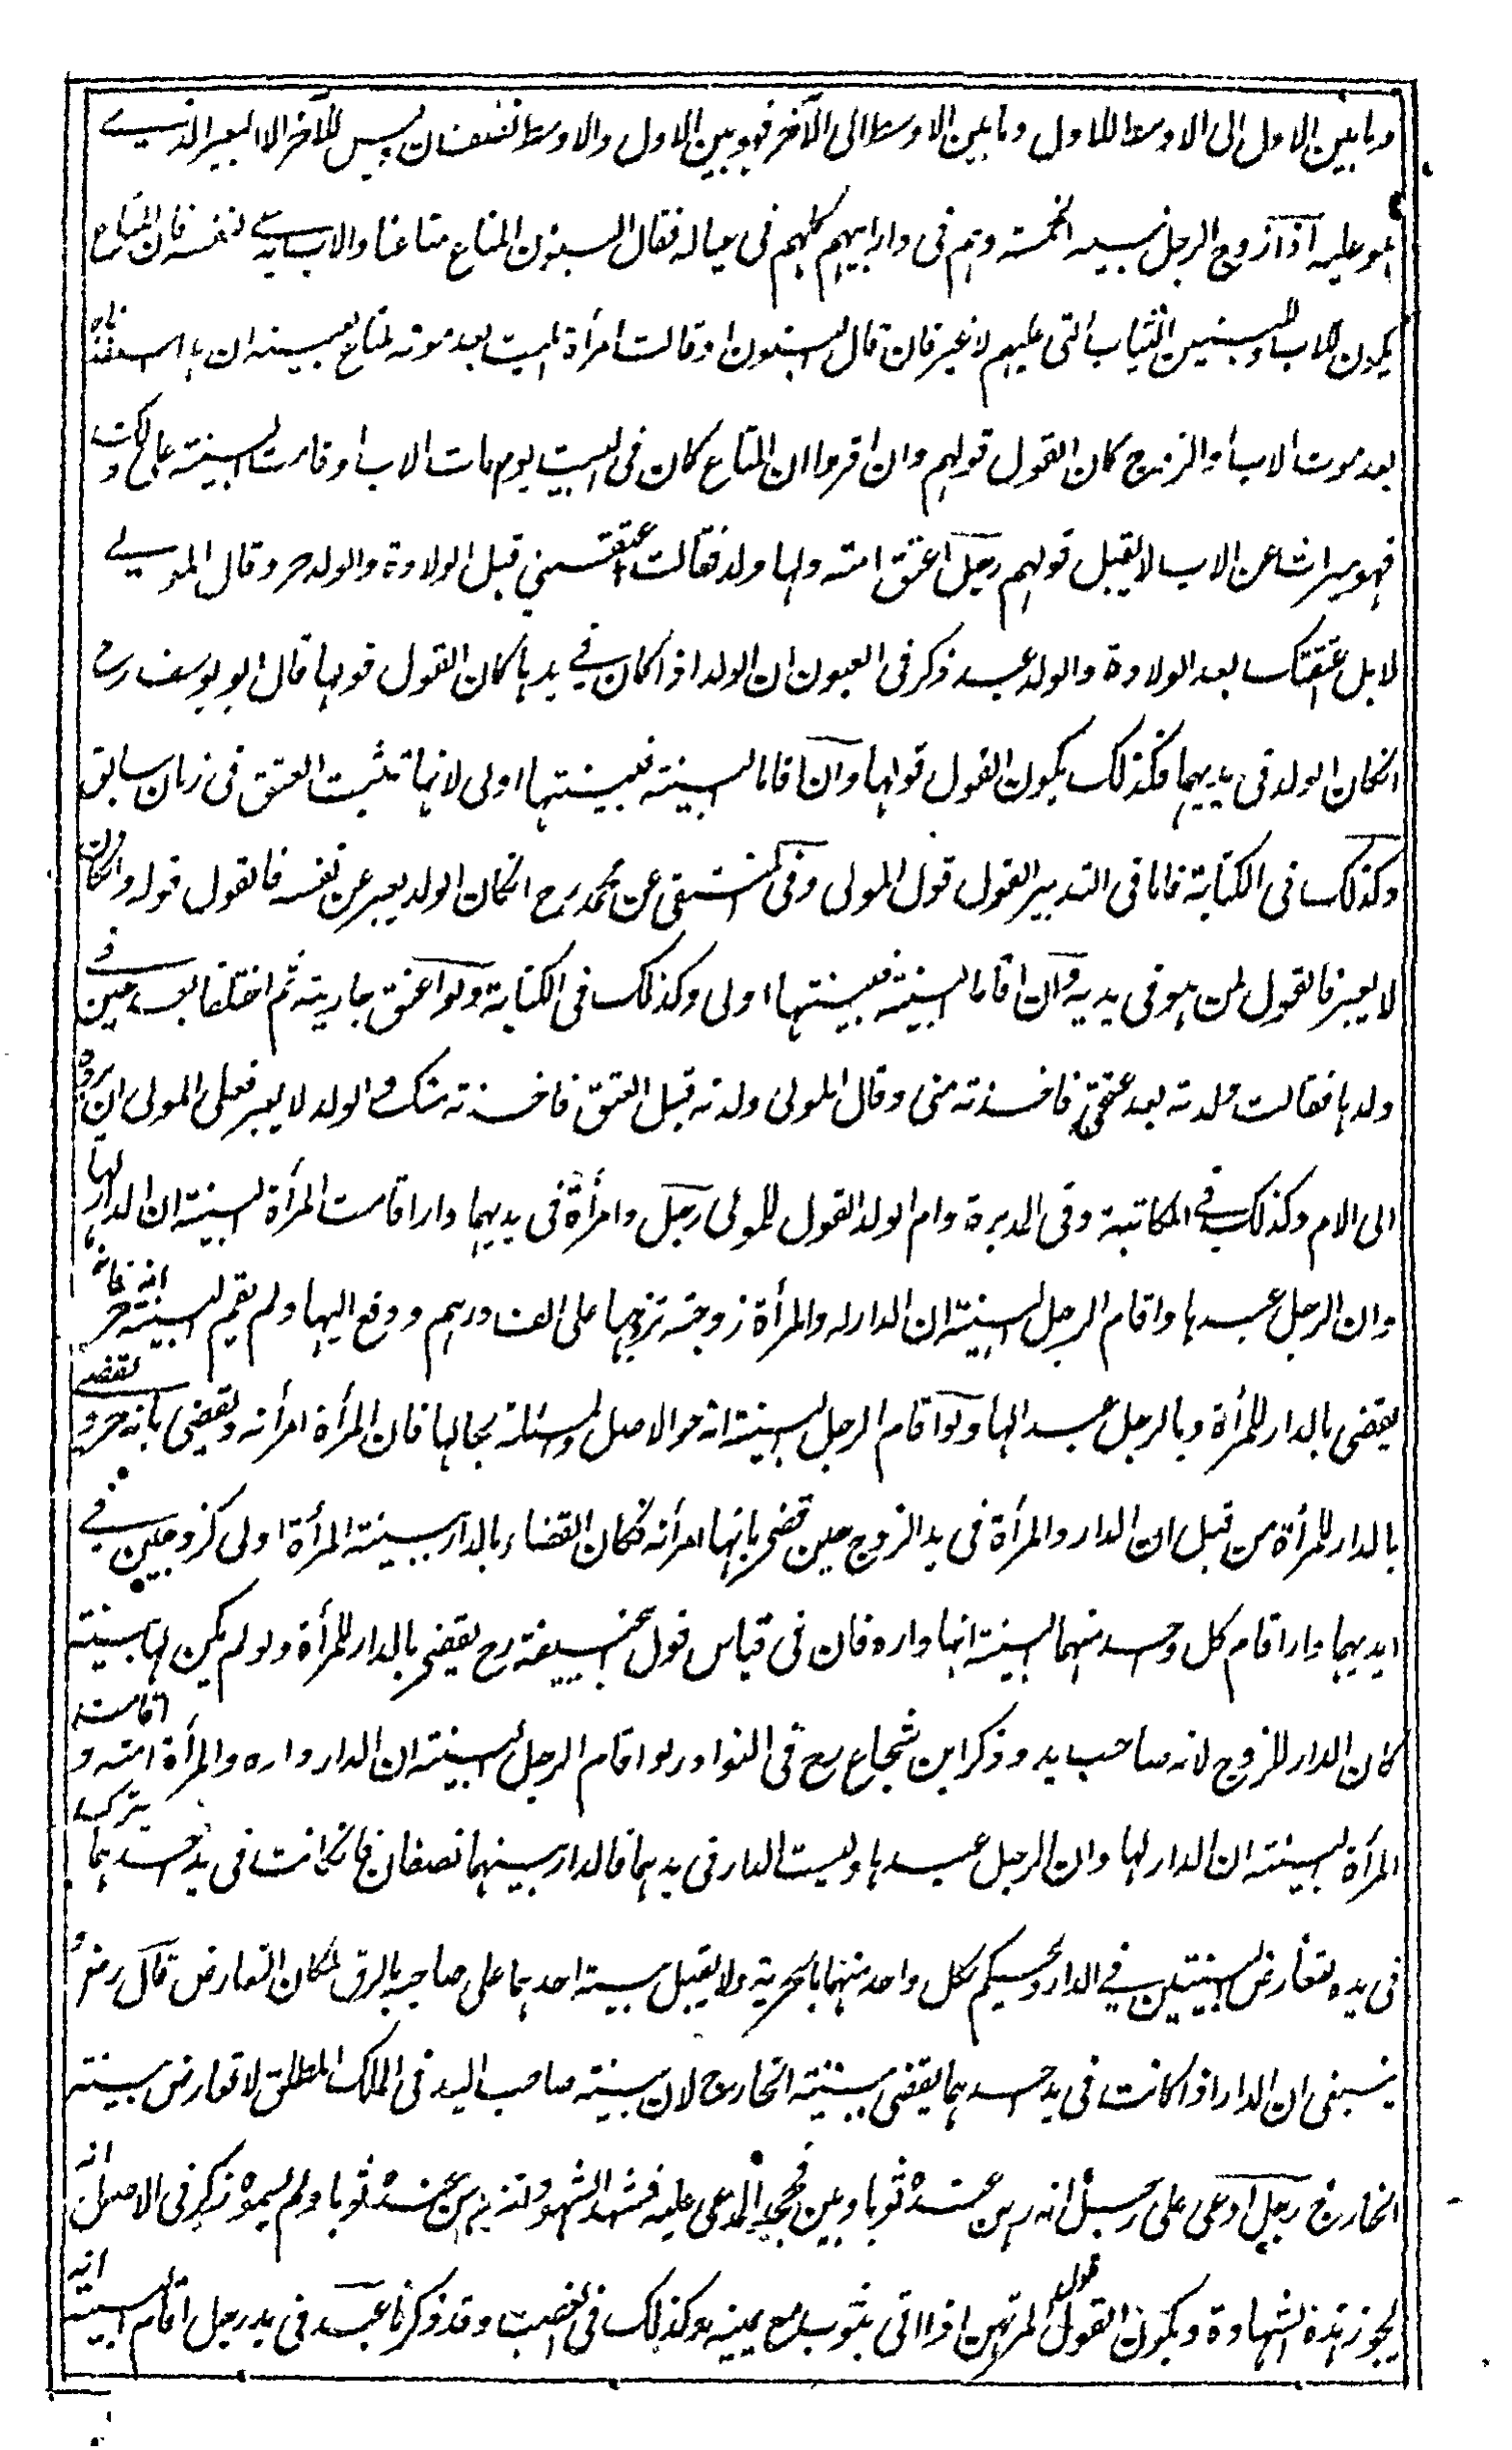 وما بين الاول الى الاوسط للاول وما بين الاوسط الى الآخر فهو بين الاول والاوسط نصفان ليس للآخر الا البعير الذي
هو عليه اذا زوج الرجل بنيه الخمسة وهم في دار ابيهم كلهم في عياله فقال البنون المتاع متاعنا والاب يدعيه لنفسه فان المتاع
يكون للاب وللبنين الثياب التي عليهم لا غير فان قال البنون او قالت امرأة الميت بعد موته لمتاع بعينه ان هذا استفدناه
بعد موت الاب او الزوج كان القول قولهم وان اقروا ان المتاع كان في البيت يوم مات الاب او قامت البينة على ذلك
فهو ميراث عن الاب لا يقبل قولهم رجل اعتق امته ولها ولد فقالت اعتقتني قبل الولادة والولد حر وقال المولى
لا بل اعتقتك بعد الولادة والولد عبد ذكر في العيون ان الولد اذا كان في يدها كان القول قولها قال ابو يوسف رح
انكان الولد في يديهما فكذلك يكون القول قولها وان اقاما البينة فبينتها اولى لانها تثبت العتق في زمان سابق
وكذلك في الكتابة فاما في التدبير القول قول المولى وفي المنتقى عن محمد رح انكان الولد يعبر عن نفسه فالقول قوله وانكان
لا يعبر فالقول لمن هو في يديه وان اقاما البينة فبينتها اولى وكذلك في الكتابة ولو اعتق جارية ثم اختلفا بعد حين في
ولدها فقالت ولدته بعد عتقي فاخذته مني وقال المولى ولدته قبل العتق فاخذته منك والولد لا يعبر فعلى المولى ان يرده
الى الام وكذلك في المكاتبة وفي المدبرة وام الولد القول للمولى رجل وامرأة في يديهما دار اقامت المرأة البينة ان الدار لها
وان الرجل عبدها واقام الرجل البينة ان الدار له والمرأة زوجته تزوجها على الف درهم ودفع اليها ولم يقم البينة انه حر فانه
يقضى بالدار للمرأة وبالرجل عبدا لها ولو اقام الرجل البينة انه حر الاصل والمسئلة بحالها فان المرأة امرأته ويقضى بانه حر ويقضى
بالدار للمرأة من قبل ان الدار والمرأة في يد الزوج حين قضي بانها امرأته فكان القضاء بالدار ببينة المرأة اولى كزوجين في
ايديهما دار اقام كل واحد منهما البينة انها داره فان في قياس قول ابي حنيفة رح يقضى بالدار للمرأة ولو لم يكن لها بينة
كان الدار للزوج لانه صاحب يد وذكر ابن شجاع رح في النوادر لو اقام الرجل البينة ان الدار داره والمرأة امته واقامت
المرأة البينة ان الدار لها وان الرجل عبدها وليست الدار في يديهما فالدار بينهما نصفان فان كانت في يد احدهما يترك
في يده لتعارض البينتين في الدار ويحكم لكل واحد منهما بالحرية ولا يقبل بينة احدهما على صاحبه بالرق لمكان التعارض قال رض و
ينبغي ان الدار اذا كانت في يد احدهما يقضى ببينة الخارج لان بينة صاحب اليد في الملك المطلق لا تعارض بينة
الخارج رجل ادعى على رجل انه رهن عنده ثوبا وبين فجحد المدعى عليه فشهد الشهود انه رهن عنده ثوبا ولم يسموه ذكر في الاصل انه
يجوز هذه الشهادة ويكون القول قول المرتهن اذا اتى بثوب مع يمينه وكذلك في الغصب وقد ذكرنا عبد في يد رجل اقام البينة انه